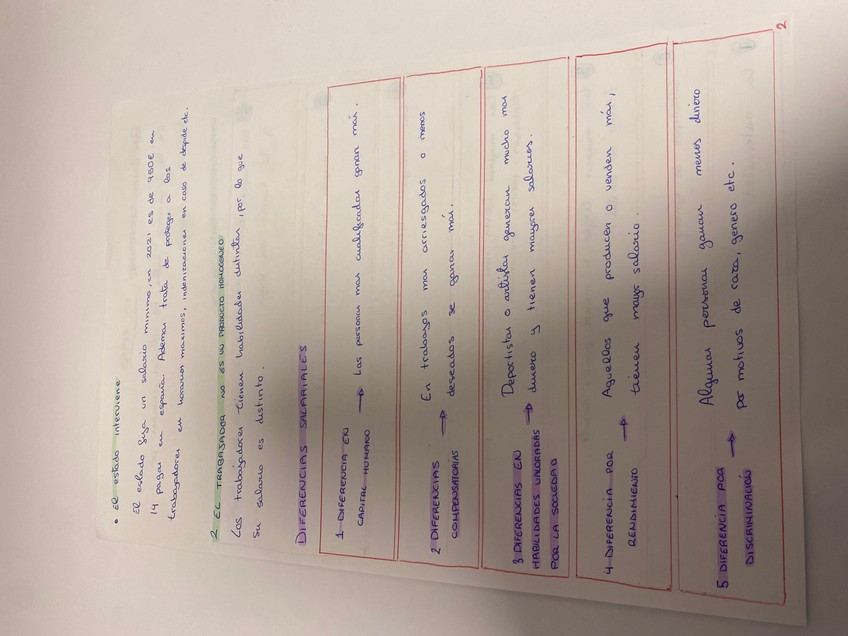 • El estado interviene
El estado fija un salario minimo, en 2021 es de 950€ en
14 pagas en españa. Ademas trata de proteger a los
trabajadores en horarios maximos, indemnizaciones en caso de despido etc.
2 EL TRABAJADOR NO ES UN PRODUCTO HOMOGENEO
Los trabajadores tienen habilidades distintas, por lo que
su salario es distinto.
DIFERENCIAS SALARIALES
1 DIFERENCIA EN
CAPITAL HUMANO → Las personas mas cualificadas ganan mas.
2 DIFERENCIAS
COMPENSATORIAS → En trabajos mas arriesgados o menos
deseados se ganar más.
3 DIFERENCIAS EN
HABILIDADES VALORADAS
POR LA SOCIEDAD → Deportistas o artistas generan mucho mas
dinero y tienen mayores salarios.
4 DIFERENCIA POR
RENDIMIENTO → Aquellos que producen o venden más,
tienen mayor salario.
5 DIFERENCIA POR
DISCRIMINACIÓN → Algunas personas ganan menos dinero
por motivos de raza, genero etc.
2